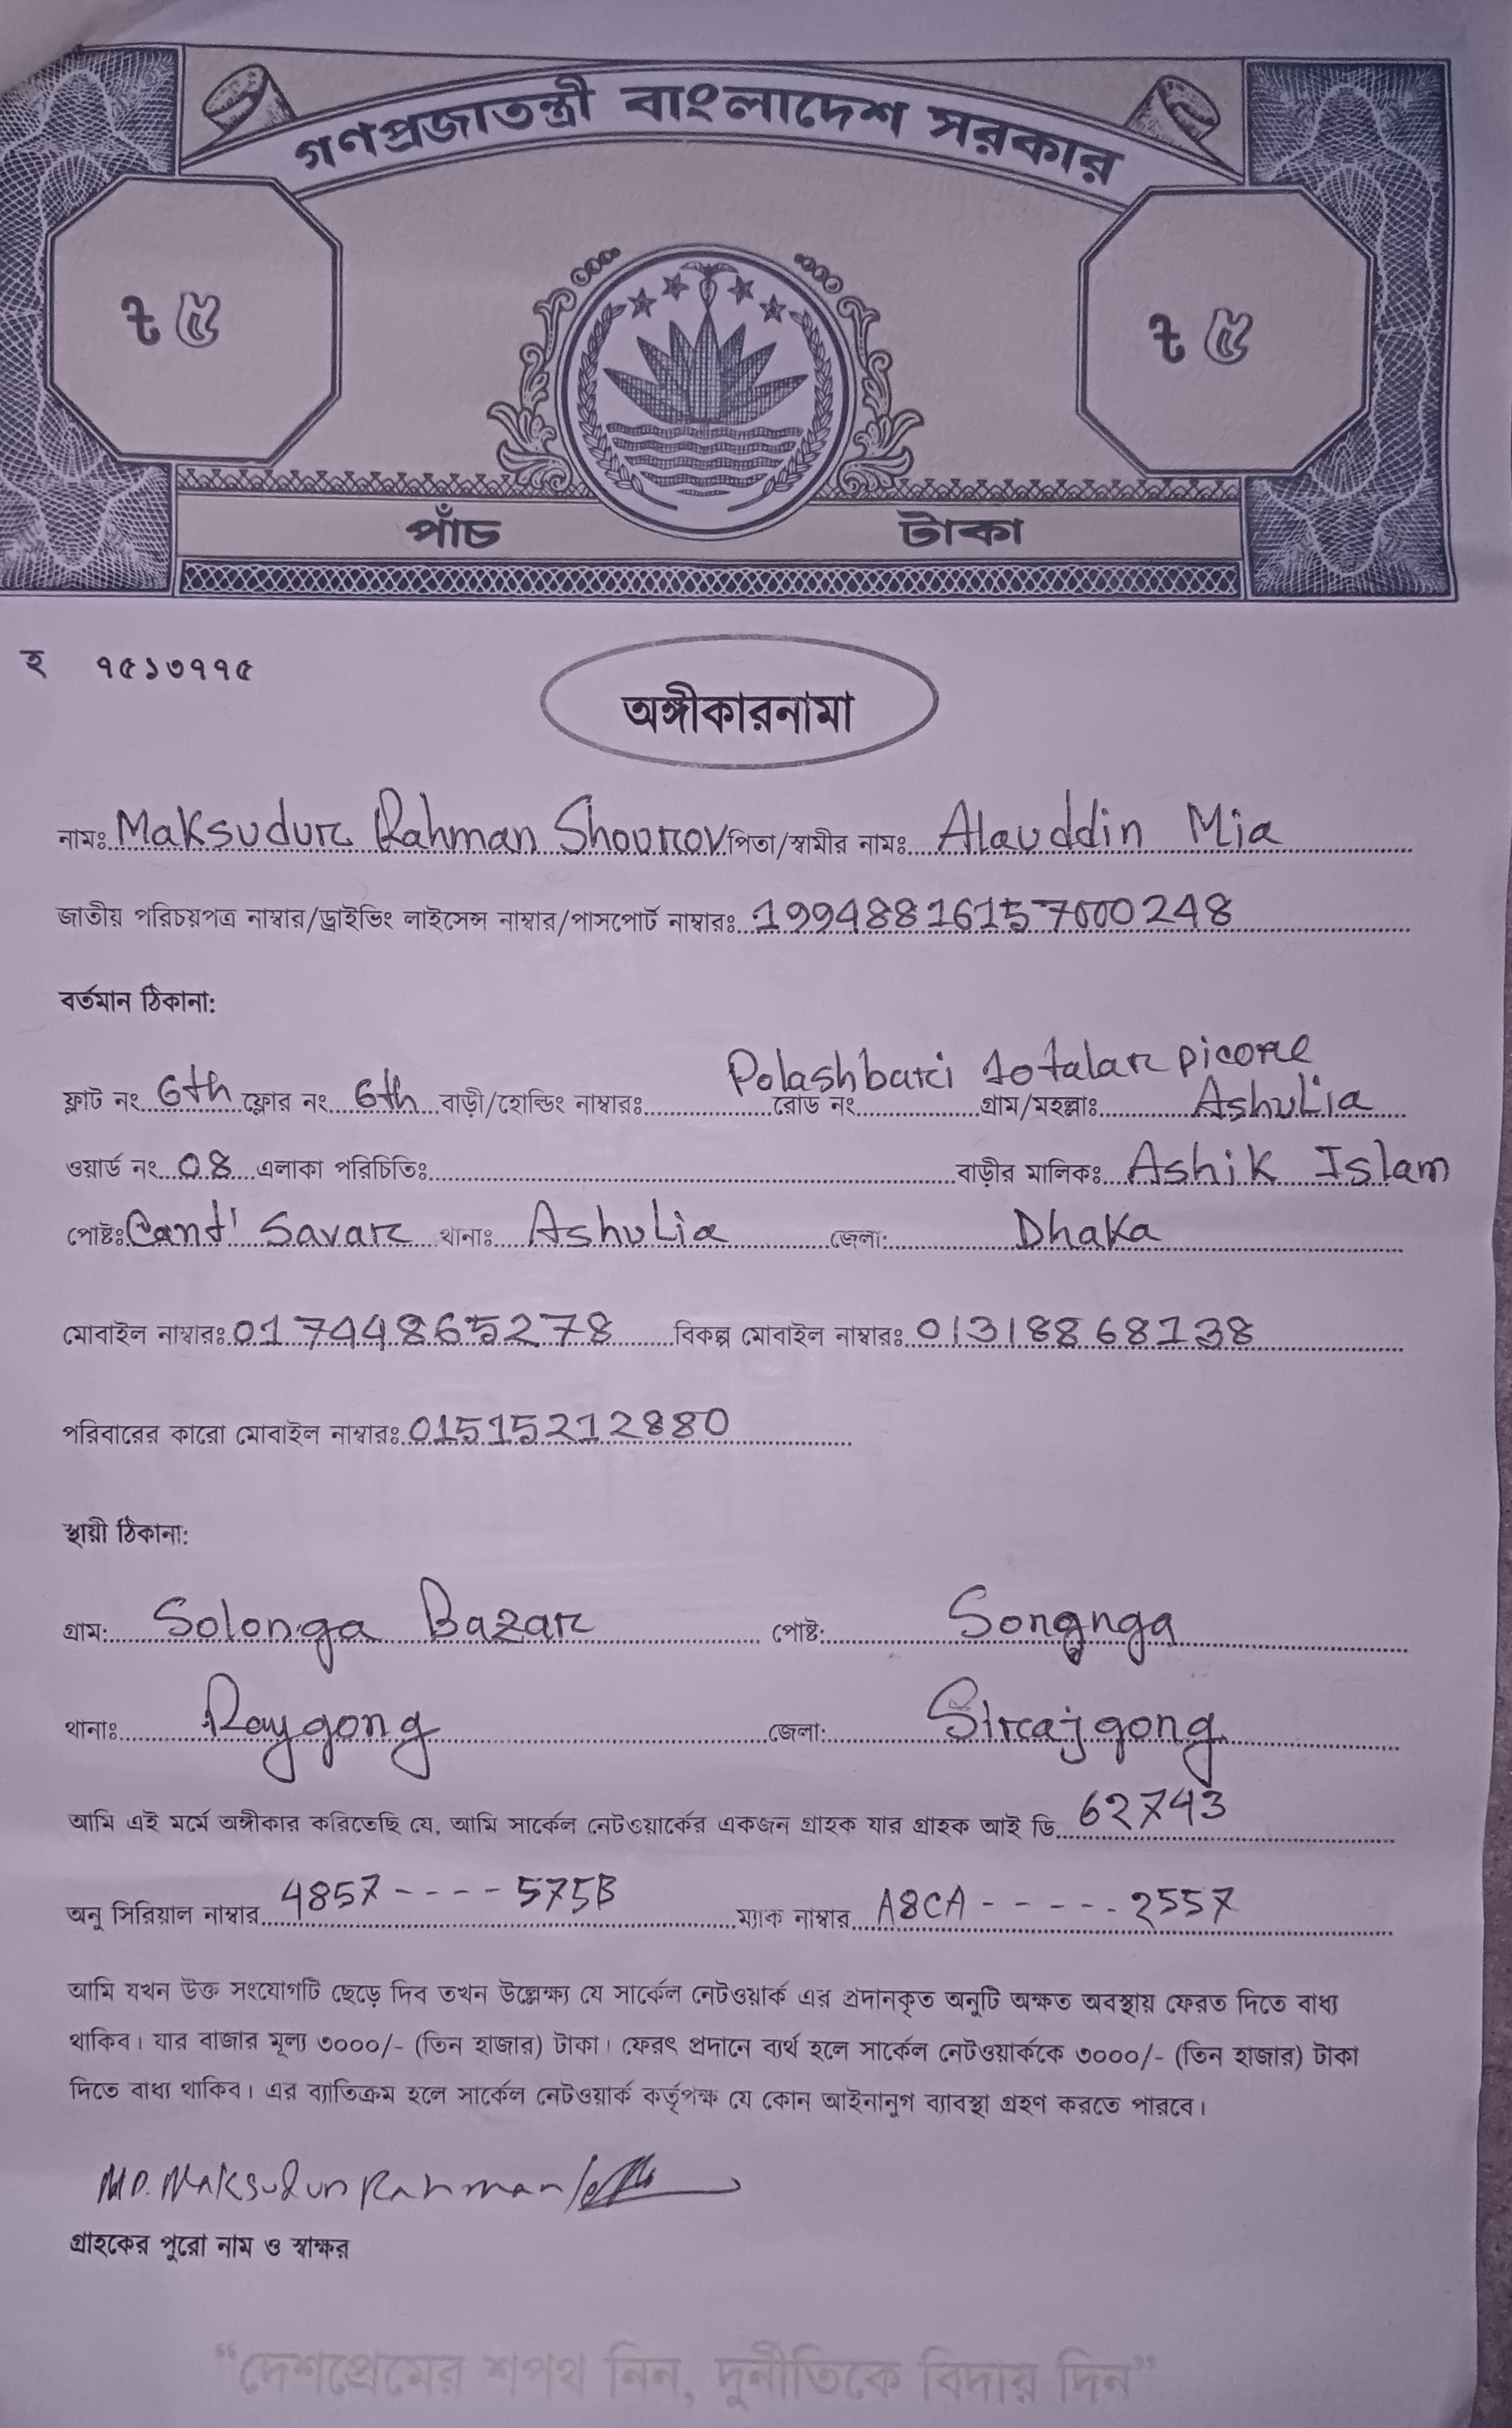 গণপ্রজাতন্ত্রী বাংলাদেশ সরকার
৳ ৫ ৳ ৫
পাঁচ টাকা
হ ৭৫১৩৭৭৫
অঙ্গীকারনামা
নামঃ Maksudur Rahman Shourov পিতা/স্বামীর নামঃ Alauddin Mia
জাতীয় পরিচয়পত্র নাম্বার/ড্রাইভিং লাইসেন্স নাম্বার/পাসপোর্ট নাম্বারঃ 19948816157000248
বর্তমান ঠিকানা:
Polashbari 10 talar picone
ফ্লাট নং 6th ফ্লোর নং 6th বাড়ী/হোল্ডিং নাম্বারঃ রোড নং গ্রাম/মহল্লাঃ Ashulia
ওয়ার্ড নং 08 এলাকা পরিচিতিঃ বাড়ীর মালিকঃ Ashik Islam
পোষ্টঃ Cant' Savar থানাঃ Ashulia জেলা: Dhaka
মোবাইল নাম্বারঃ 01744865278 বিকল্প মোবাইল নাম্বারঃ 01318868138
পরিবারের কারো মোবাইল নাম্বারঃ 01515212880
স্থায়ী ঠিকানা:
গ্রাম: Solonga Bazar পোষ্ট:
থানাঃ Raygong জেলা: Sirajgong
আমি এই মর্মে অঙ্গীকার করিতেছি যে, আমি সার্কেল নেটওয়ার্কের একজন গ্রাহক যার গ্রাহক আই ডি 62743
অনু সিরিয়াল নাম্বার 4857 - - - - 575B ম্যাক নাম্বার A8CA - - - - - 2557
আমি যখন উক্ত সংযোগটি ছেড়ে দিব তখন উল্লেক্ষ্য যে সার্কেল নেটওয়ার্ক এর প্রদানকৃত অনুটি অক্ষত অবস্থায় ফেরত দিতে বাধ্য
থাকিব। যার বাজার মূল্য ৩০০০/- (তিন হাজার) টাকা। ফেরৎ প্রদানে ব্যর্থ হলে সার্কেল নেটওয়ার্ককে ৩০০০/- (তিন হাজার) টাকা
দিতে বাধ্য থাকিব। এর ব্যাতিক্রম হলে সার্কেল নেটওয়ার্ক কর্তৃপক্ষ যে কোন আইনানুগ ব্যাবস্থা গ্রহণ করতে পারবে।
MD. Maksudur Rahman
গ্রাহকের পুরো নাম ও স্বাক্ষর
“দেশপ্রেমের শপথ নিন, দুর্নীতিকে বিদায় দিন”